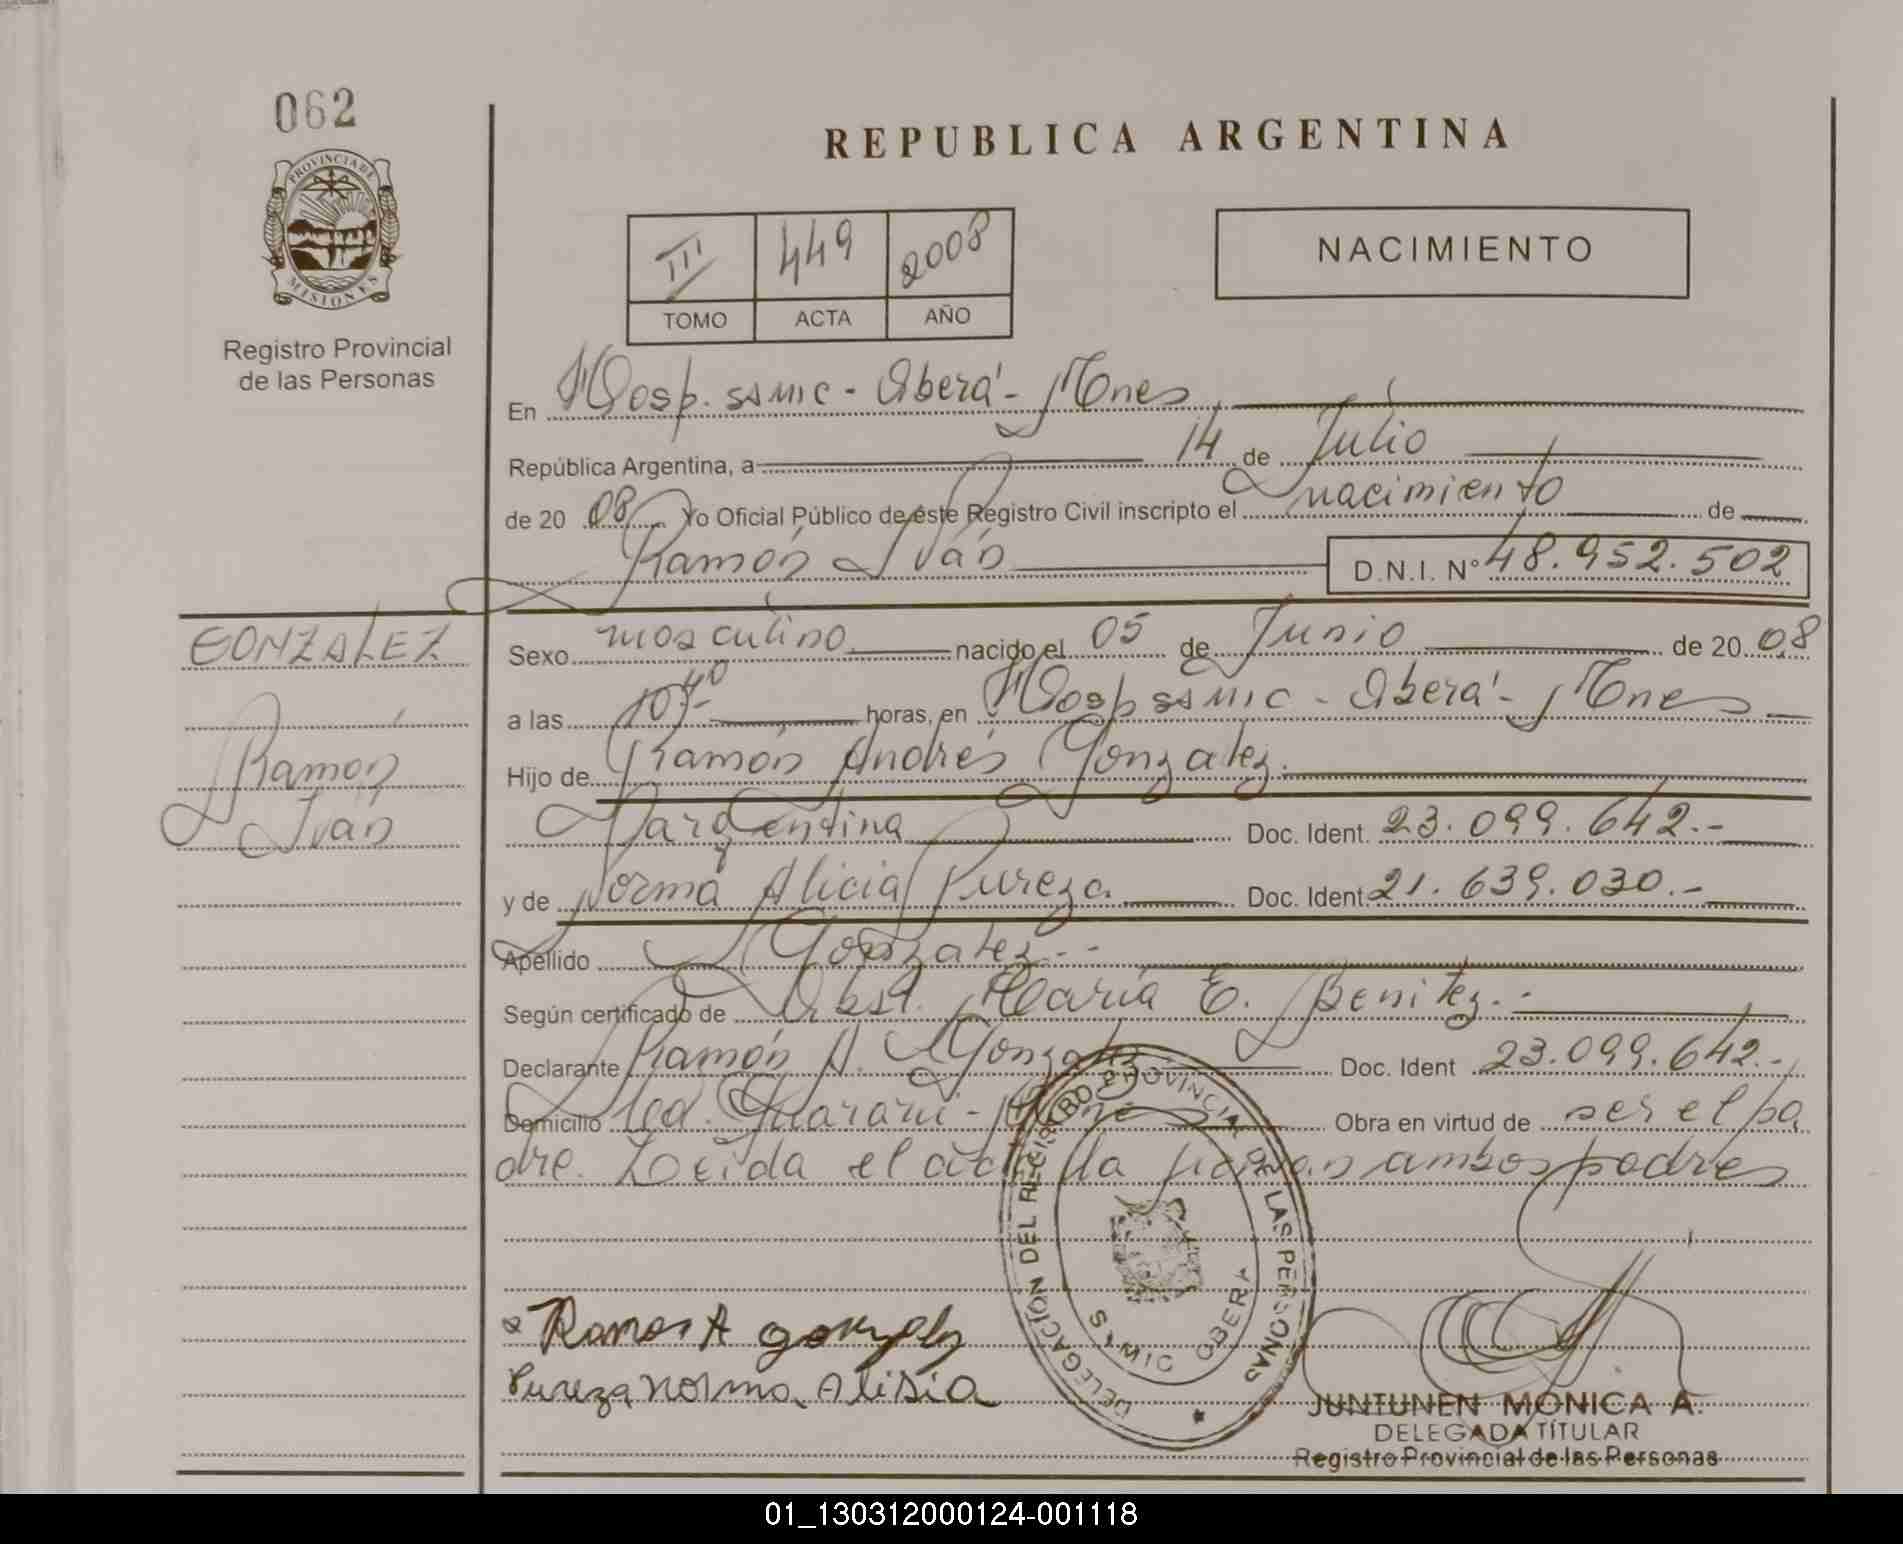 062
REPUBLICA ARGENTINA
PROVINCIA DE
MISIONES
Registro Provincial
de las Personas
III 449 2008
TOMO ACTA AÑO
NACIMIENTO
En Hosp. SAMIC - Oberá - Mnes
República Argentina, a 14 de Julio
de 20 08 Yo Oficial Público de éste Registro Civil inscripto el nacimiento de
Ramón Iván D.N.I. N° 48.952.502
GONZALEZ
Ramón
Iván
Sexo masculino nacido el 05 de Junio de 20 08
a las 10,40- horas, en Hosp SAMIC - Oberá - Mnes
Hijo de Ramón Andrés Gonzalez.
argentina Doc. Ident. 23.099.642.-
y de Norma Alicia Pureza Doc. Ident 21.639.030.-
Apellido Gonzalez.-
Según certificado de Obst. María E. Benitez.-
Declarante Ramón A. Gonzalez Doc. Ident 23.099.642.-
Domicilio Guaraní - Mnes Obra en virtud de ser el pa
dre. Leida el acta la firman ambos padres
Ramon A gonzalez
Pureza Norma Alisia
DELEGACIÓN DEL REGISTRO PROVINCIAL DE LAS PERSONAS
SAMIC OBERA
JUNTUNEN MONICA A.
DELEGADA TÍTULAR
Registro Provincial de las Personas
01_130312000124-001118